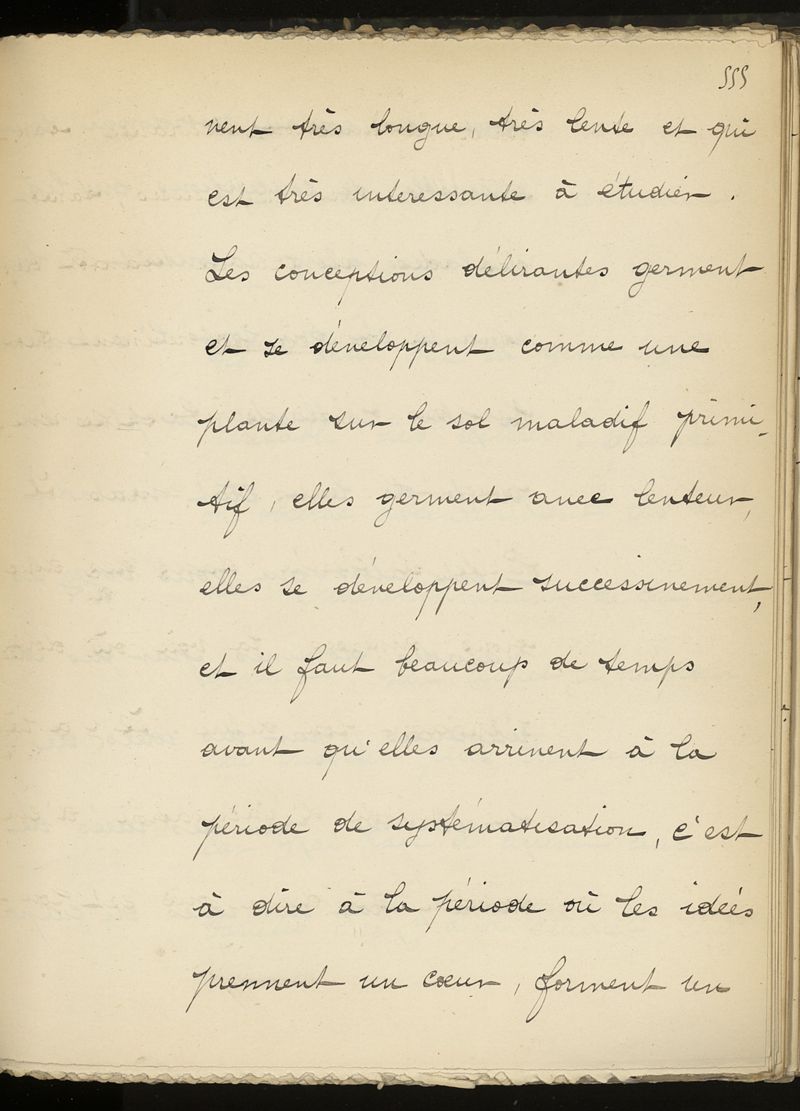 555
vent très longue, très lente et qui
est très interessante à étudier.
Les conceptions délirantes germent
et se développent comme une
plante sur le sol maladif primi-
tif, elles germent avec lenteur,
elles se développent successivement,
et il faut beaucoup de temps
avant qu'elles arrivent à la
période de systématisation, c'est
à dire à la période où les idées
prennent un cœur, forment un